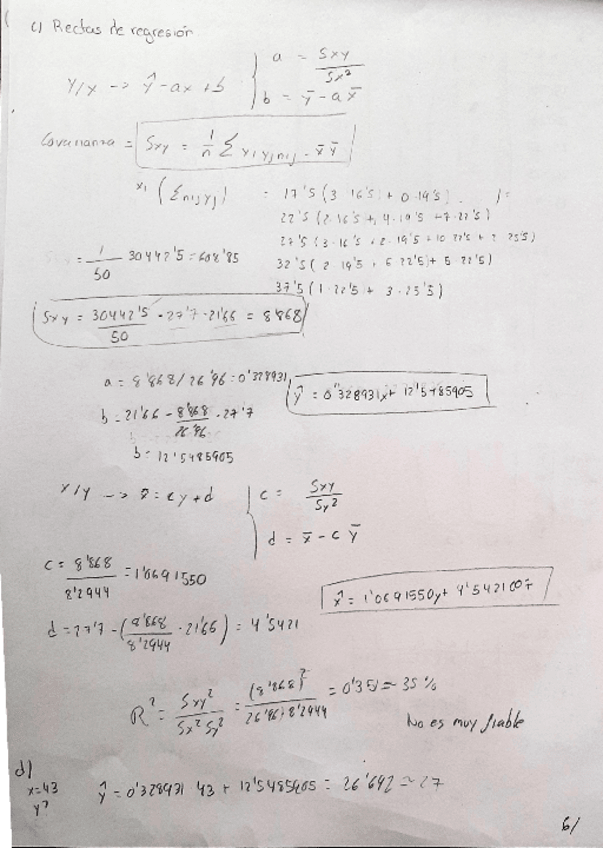 c) Rectas de regresión
Y/X -> ŷ = ax + b { a = Sxy / Sx²
b = ȳ - a x̄
Covarianza = Sxy = 1/n Σ xi yj nij - x̄ ȳ
xi (Σ nij yj) = 17'5 (3·16'5 + 0·19'5)
22'5 (2·16'5 + 4·19'5 + 7·22'5)
27'5 (3·16'5 + 2·19'5 + 10·22'5 + 2·25'5)
32'5 (2·19'5 + 6·22'5 + 5·22'5)
37'5 (1·22'5 + 3·25'5)
= 1/50 30442'5 = 608'85
Sxy = 30442'5/50 - 27'7·21'66 = 8'868
a = 8'868/26'96 = 0'328931
ŷ = 0'328931x + 12'5485905
b = 21'66 - 8'868/26'96 · 27'7
b = 12'5485905
X/Y -> x̂ = cy + d { c = Sxy / Sy²
d = x̄ - c ȳ
c = 8'868 / 8'2944 = 1'0691550
x̂ = 1'0691550y + 4'5421007
d = 27'7 - (8'868/8'2944 · 21'66) = 4'5421
R² = Sxy² / Sx² Sy² = (8'868)² / 26'96·8'2944 = 0'351 ≈ 35 %
No es muy fiable
d)
x = 43
y?
ŷ = 0'328931·43 + 12'5485905 = 26'692 ≈ 27
6/